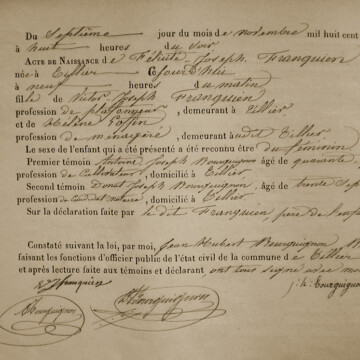 Du Septième jour du mois de novembre mil huit cent
à huit heures du soir
ACTE DE NAISSANCE de Félicité Joseph Franquien
née à Tillier Cejourd'hui
à neuf heures du matin
fille de Victor Joseph Franquien
profession de plafonneur, demeurant à Tillier
et de
profession de ménagère, demeurant audit Tillier
Le sexe de l'enfant qui a été présenté a été reconnu être du féminin
Premier témoin Antoine Joseph Bourguignon âgé de quarante
profession de Cultivateur, domicilié à Tillier
Second témoin Donat Joseph Bourguignon, âgé de trente Sept
profession de, domicilié à Tillier
Sur la déclaration faite par le dit Franquien, père de l'enfant
Constaté suivant la loi, par moi, Jean Hubert Bourguignon
faisant les fonctions d'officier public de l'état civil de la commune de Tillier
et après lecture faite aux témoins et déclarant, ont tous signé avec moi
Franquien J. H. Bourguignon
Bourguignon Bourguignon